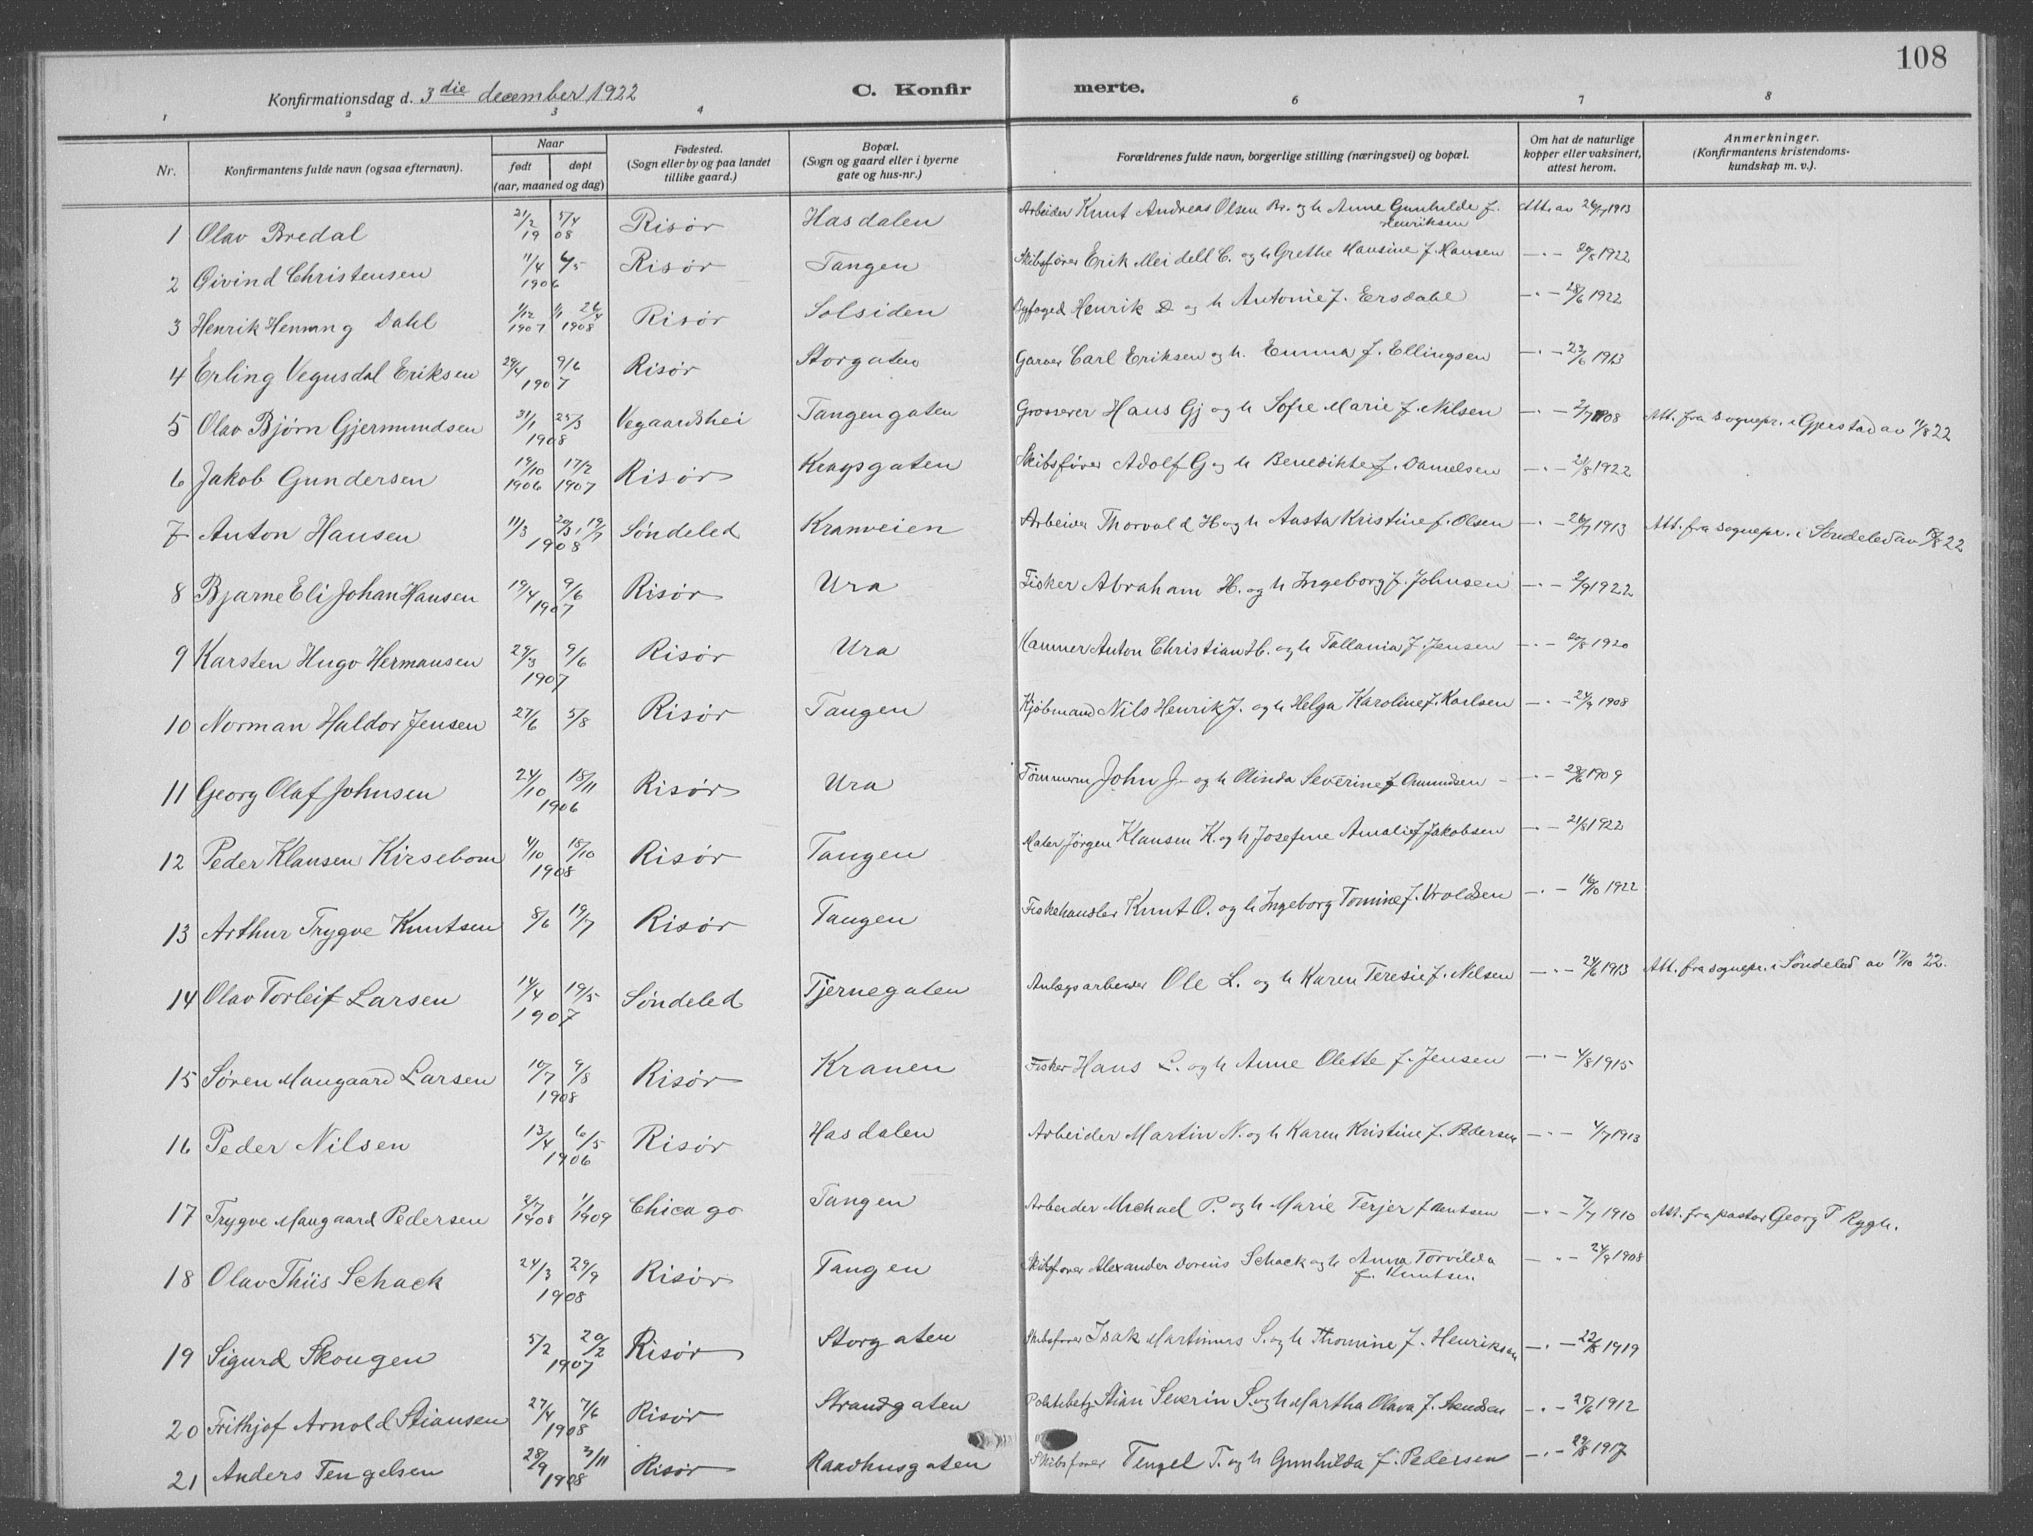 108
Konfirmationsdag d. 3 die december 1922
C. Konfirmerte.
1 2 3 4 6 7 8
Nr. Konfirmantens fulde navn (ogsaa efternavn). Naar født døpt (aar, maaned og dag) Fødested. (Sogn eller by og paa landet tillike gaard.) Bopæl. (Sogn og gaard eller i byerne gate og hus-nr.) Forældrenes fulde navn, borgerlige stilling (næringsvei) og bopæl. Om hat de naturlige kopper eller vaksinert, attest herom. Anmerkninger. (Konfirmantens kristendomskundskap m. v.).
1 Olav Bredal 21/2 5/4 1908 Risør Hasdalen Arbeider Knut Andreas Olsen Br. og h Anne Gunhilde f. Henriksen Att. av 26/7 1913
2 Øivind Christensen 11/4 6/5 1906 Risør Tangen Skibsfører Erik Meidell C. og h Grethe Hansine f. Hansen —·— 20/8 1922
3 Henrik Henning Dahl 1/12 1907 26/4 1908 Risør Solsiden Byfoged Henrik D og h Antonie f. Eersdahl —·— 28/6 1922
4 Erling Vegusdal Eriksen 29/4 9/6 1907 Risør Storgaten Garver Carl Eriksen og h. Emma f. Ellingsen —·— 23/6 1913
5 Olav Bjørn Gjermundsen 31/1 25/3 1908 Vegaardshei Tangengaten Grosserer Hans Gj og h Sofie Marie f. Nilsen —·— 2/7 1908 Att. fra sognepr. i Gjerstad av 11/8 22
6 Jakob Gundersen 19/10 1906 17/2 1907 Risør Kragsgaten Skibsfører Adolf G og h Benedikte f. Danielsen —·— 21/8 1922
7 Anton Hansen 11/3 19/7 1908 Søndeled Kranveien Arbeider Thorvald H og h Aasta Kristine f. Olsen —·— 26/7 1913 Att. fra sognepr. i Søndeled av 18/8 22
8 Bjarne Eli Johan Hansen 19/4 9/6 1907 Risør Ura Fisker Abraham H. og h Ingeborg f. Johnsen —·— 2/9 1922
9 Karsten Hugo Hermansen 29/3 9/6 1907 Risør Ura Anton Christian H. og h Tallania f. Jensen —·— 20/8 1920
10 Norman Haldor Jensen 27/6 5/8 Risør Tangen Kjøbmand Nils Henrik J. og h Helga Karoline f. Karlsen —·— 24/9 1908
11 Georg Olaf Johnsen 24/10 18/11 1906 Risør Ura Tømmerm John J— og h Olinda Severine f Omundsen —·— 28/6 1909
12 Peder Klausen Kirsebom 4/10 18/10 1908 Risør Tangen Maler Jørgen Klausen K. og h Josefine Amalie f Jakobsen —·— 21/8 1922
13 Arthur Trygve Knutsen 8/6 19/7 Risør Tangen Fiskehandler Knut O. og h Ingeborg Tomine f. Vroldsen —·— 16/10 1922
14 Olav Torleif Larsen 14/4 19/5 1907 Søndeled Tjernegaten Anlægsarbeider Ole L. og h Karen Teresie f. Nilsen —·— 24/6 1913 Att. fra sognepr. i Søndeled av 17/10 22.
15 Søren Maugaard Larsen 10/7 9/8 1908 Risør Kranen Fisker Hans L. og h Anne Olette f. Jensen —·— 4/8 1915
16 Peder Nilsen 13/4 6/5 1906 Risør Hasdalen Arbeider Martin N. og h Karen Kristine f. Pedersen —·— 4/7 1913
17 Trygve Maugaard Pedersen 2/7 1908 1909 Chicago Tangen Arbeider Michael P. og h Marie Terjer f Knutsen —·— 7/7 1910 Att. fra pastor Georg T Rygh.
18 Olav Thiis Schack 24/3 29/9 1908 Risør Tangen Skibsfører Alexander Dorenis Schack og h Anna Torvilda f. Knutsen —·— 24/9 1908
19 Sigurd Skougen 5/2 20/2 1907 Risør Storgaten Skibsfører Isak Martinius S. og h Thomine f. Henriksen —·— 22/8 1919
20 Frithjof Arnold Stiansen 27/4 7/6 1908 Risør Strandgaten Politibetj Stian Severin S. og h Martha Olava f. —·— 25/6 1912
21 Anders Tengelsen 28/9 3/11 1908 Risør Raadhusgaten Skibsfører Tengel T. og h Gunhilda f. Pedersen —·— 29/8 1917